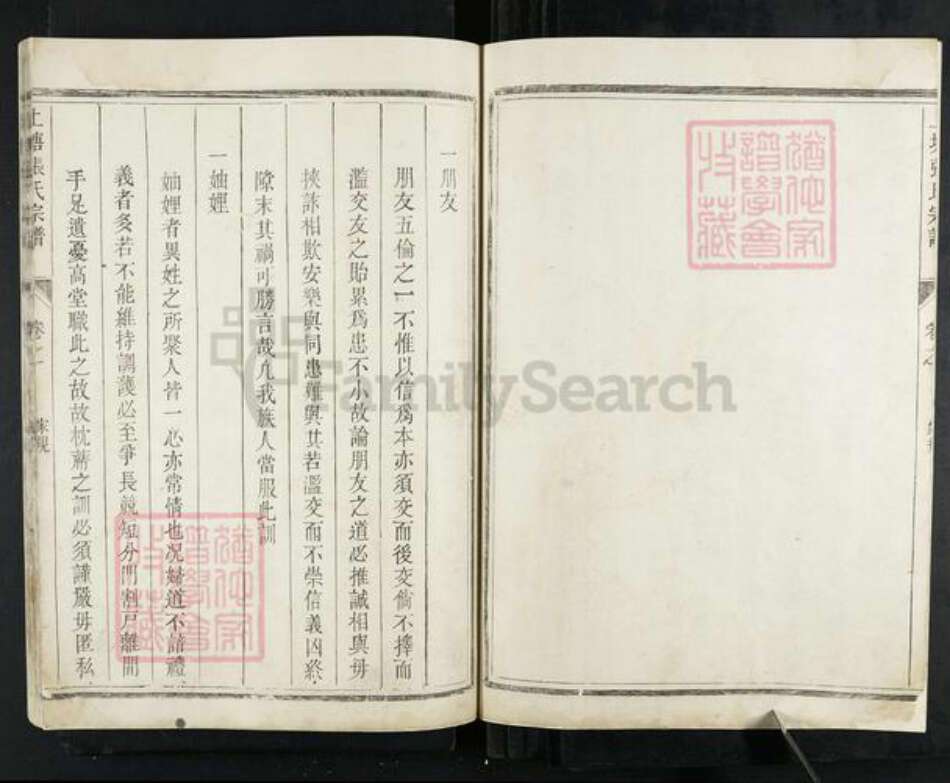 一朋友
朋友五倫之一不惟以信爲本亦須交而後交倘不擇而
濫交友之貽累爲患不小故論朋友之道必推誠相與毋
挾詐相欺安樂與同患難與共若濫交而不崇信義凶終
隙末其禍可勝言哉凡我族人當服此訓
一妯娌
妯娌者異姓之所聚人皆一心亦常情也况婦道不諳禮
義者多若不能維持調護必至爭長競短分門割戸離間
手足遺憂高堂職此之故故枕蓆之訓必須謹嚴毋匿私
上塘張氏宗譜
卷之一
家規
譜學會
收藏
FamilySearch